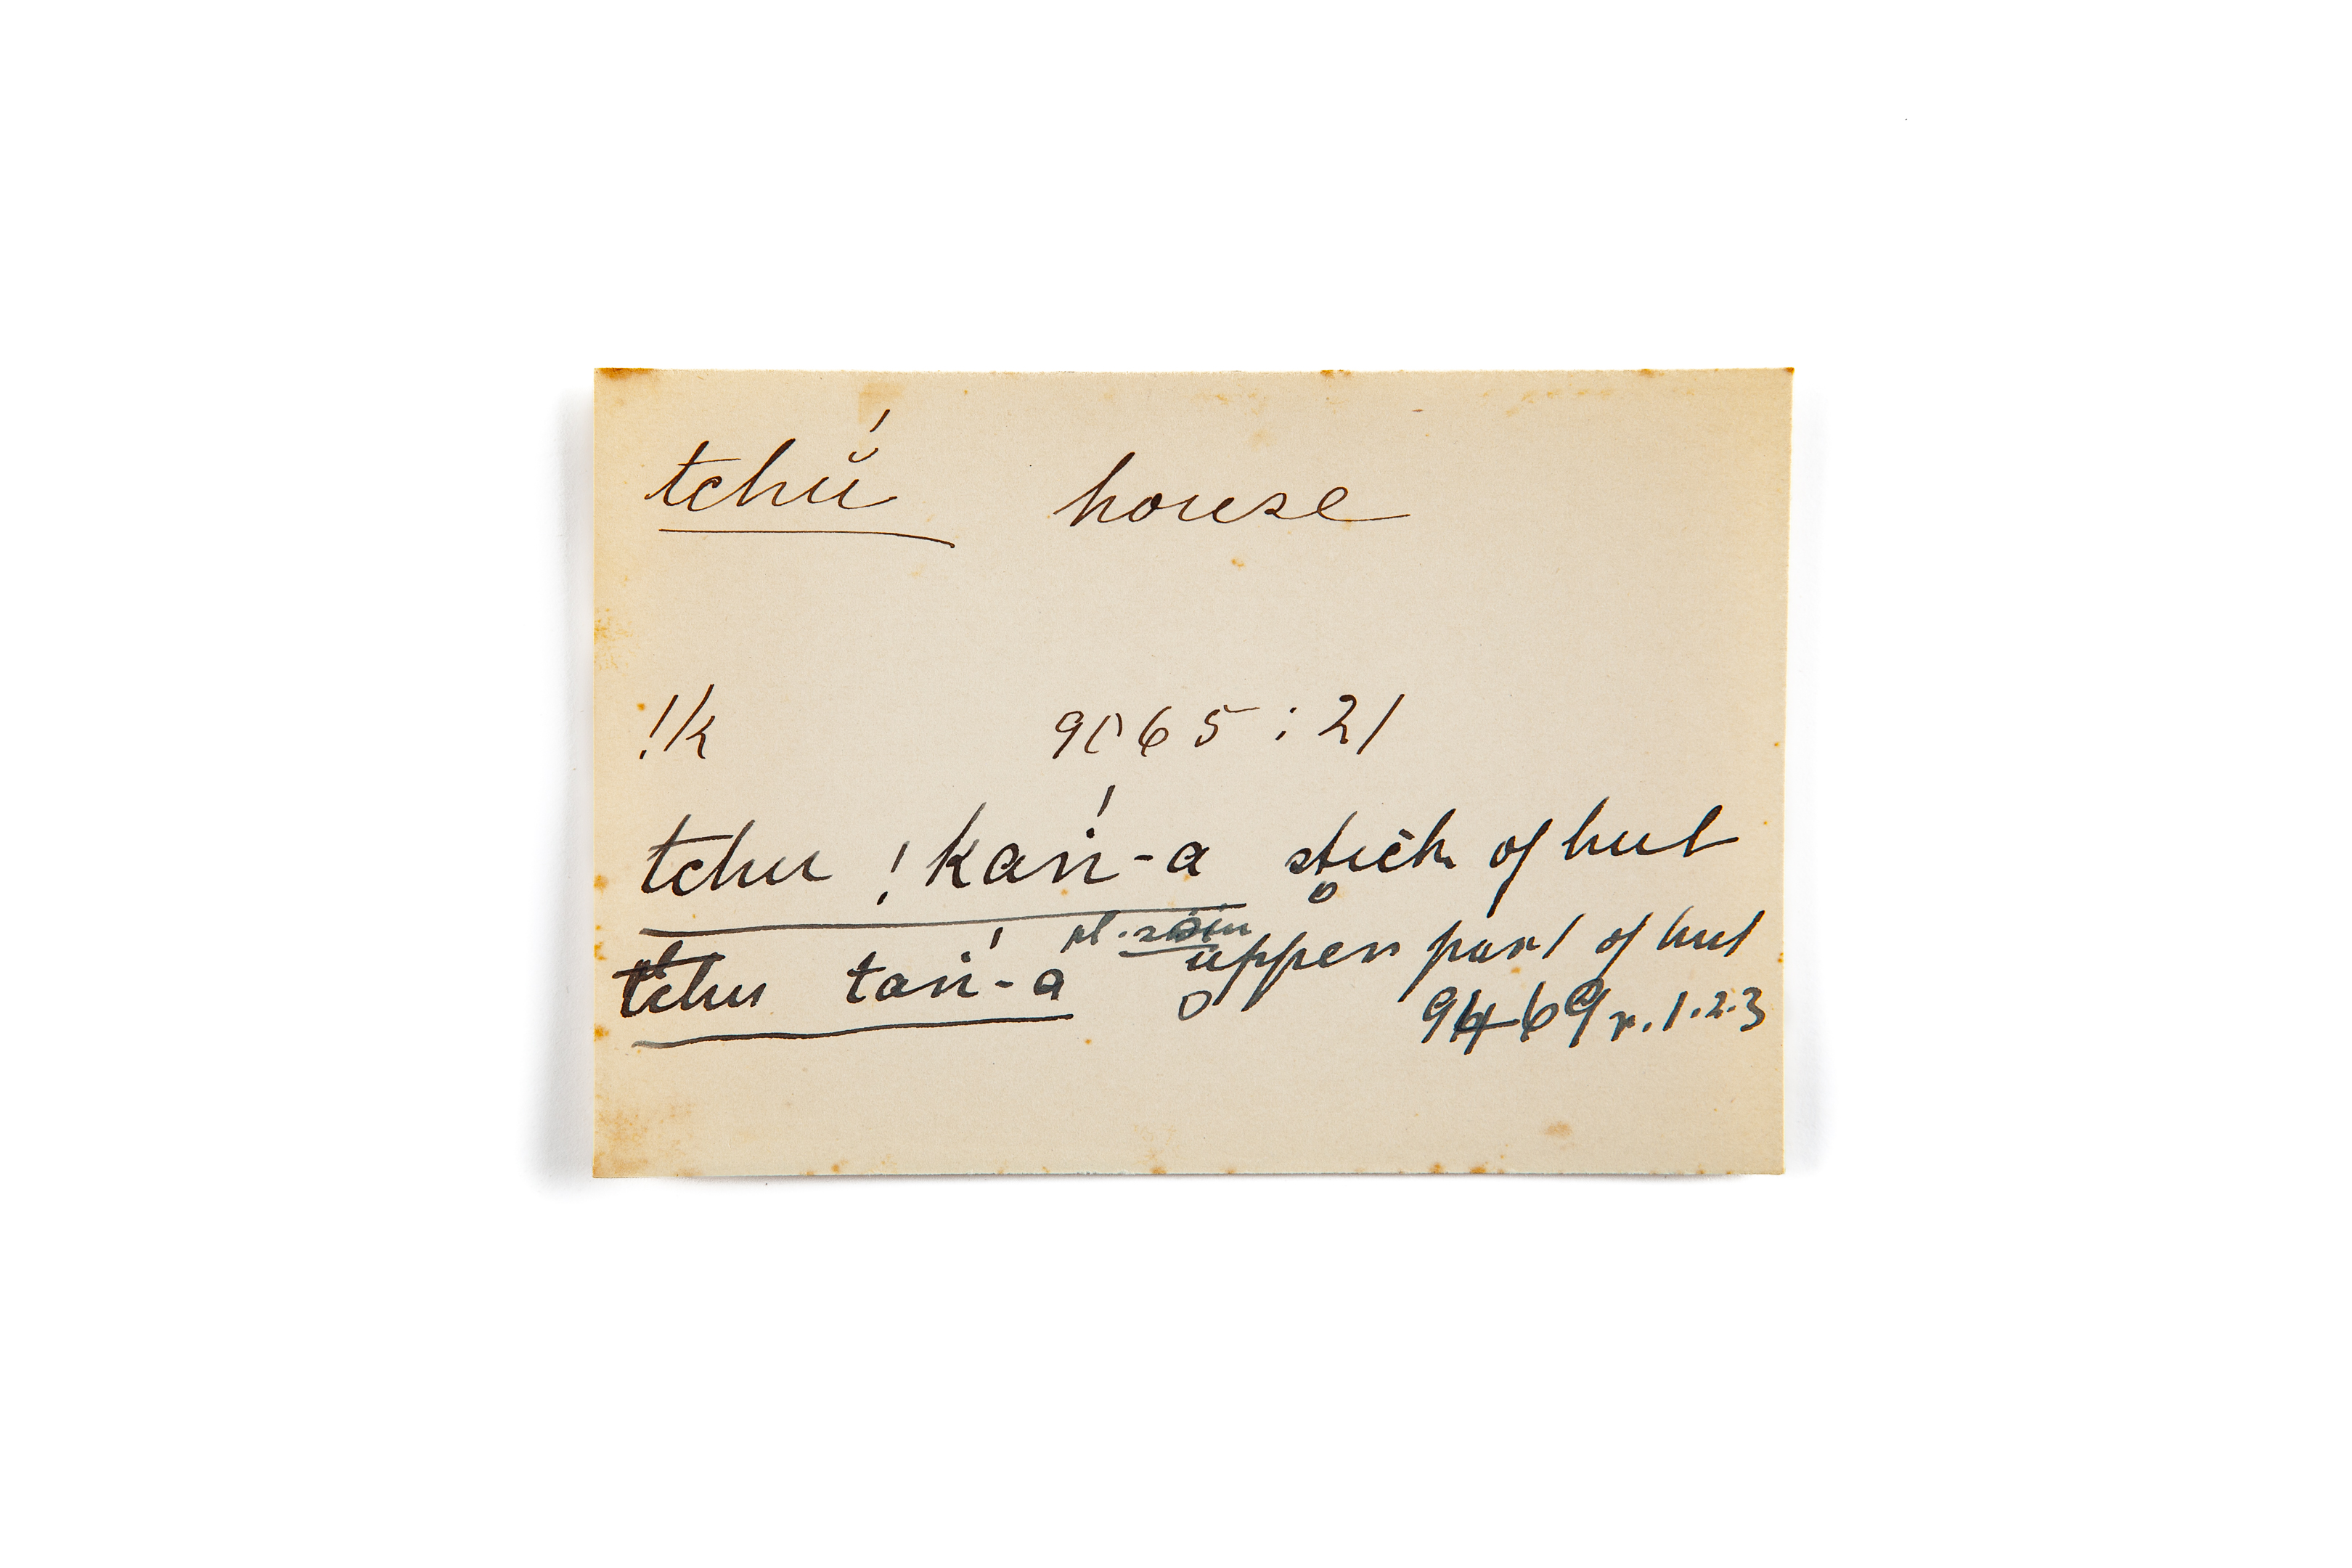 tchŭ́ house
!k 9065:21
tchu !kaṅ́-a stick of hut
pl. 
tchu taṅ́-a upper part of hut
9469 r. 1.2.3